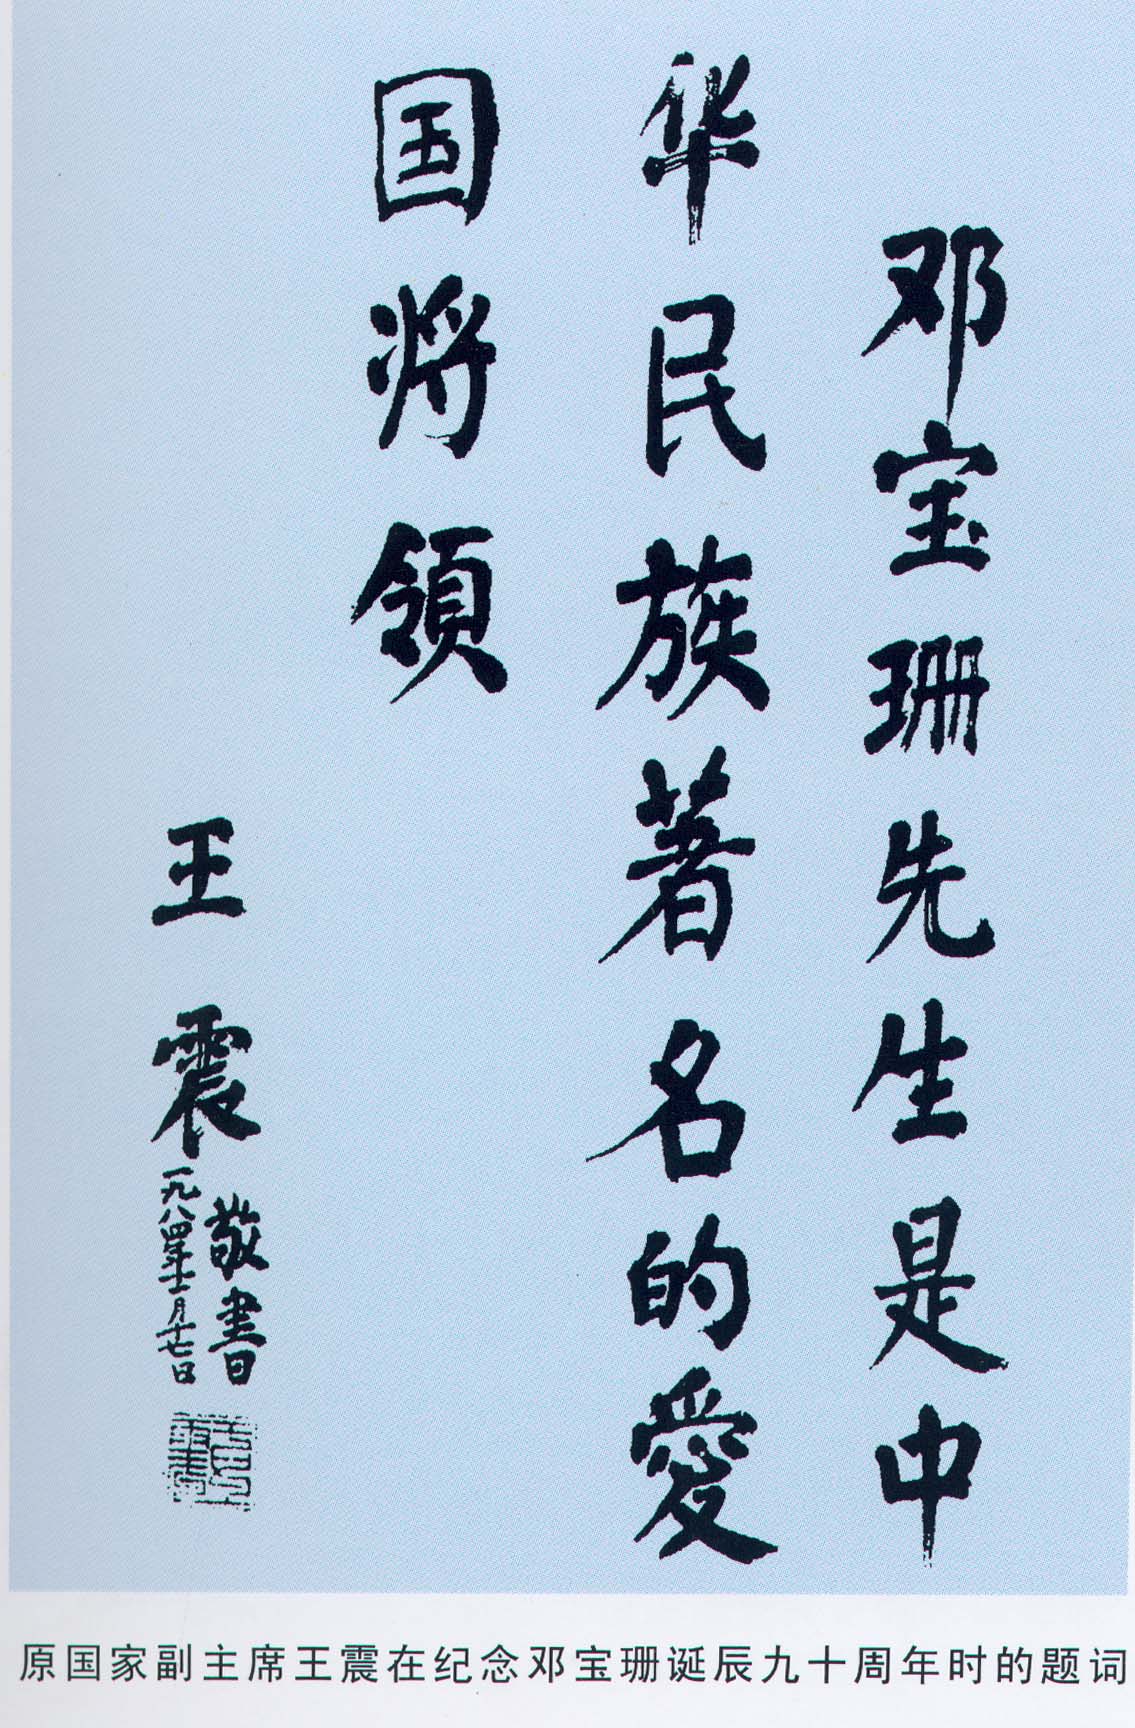 邓宝珊先生是中
华民族著名的愛
国将領
王震
敬書
一九八四年十一月十七日
原国家副主席王震在纪念邓宝珊诞辰九十周年时的题词